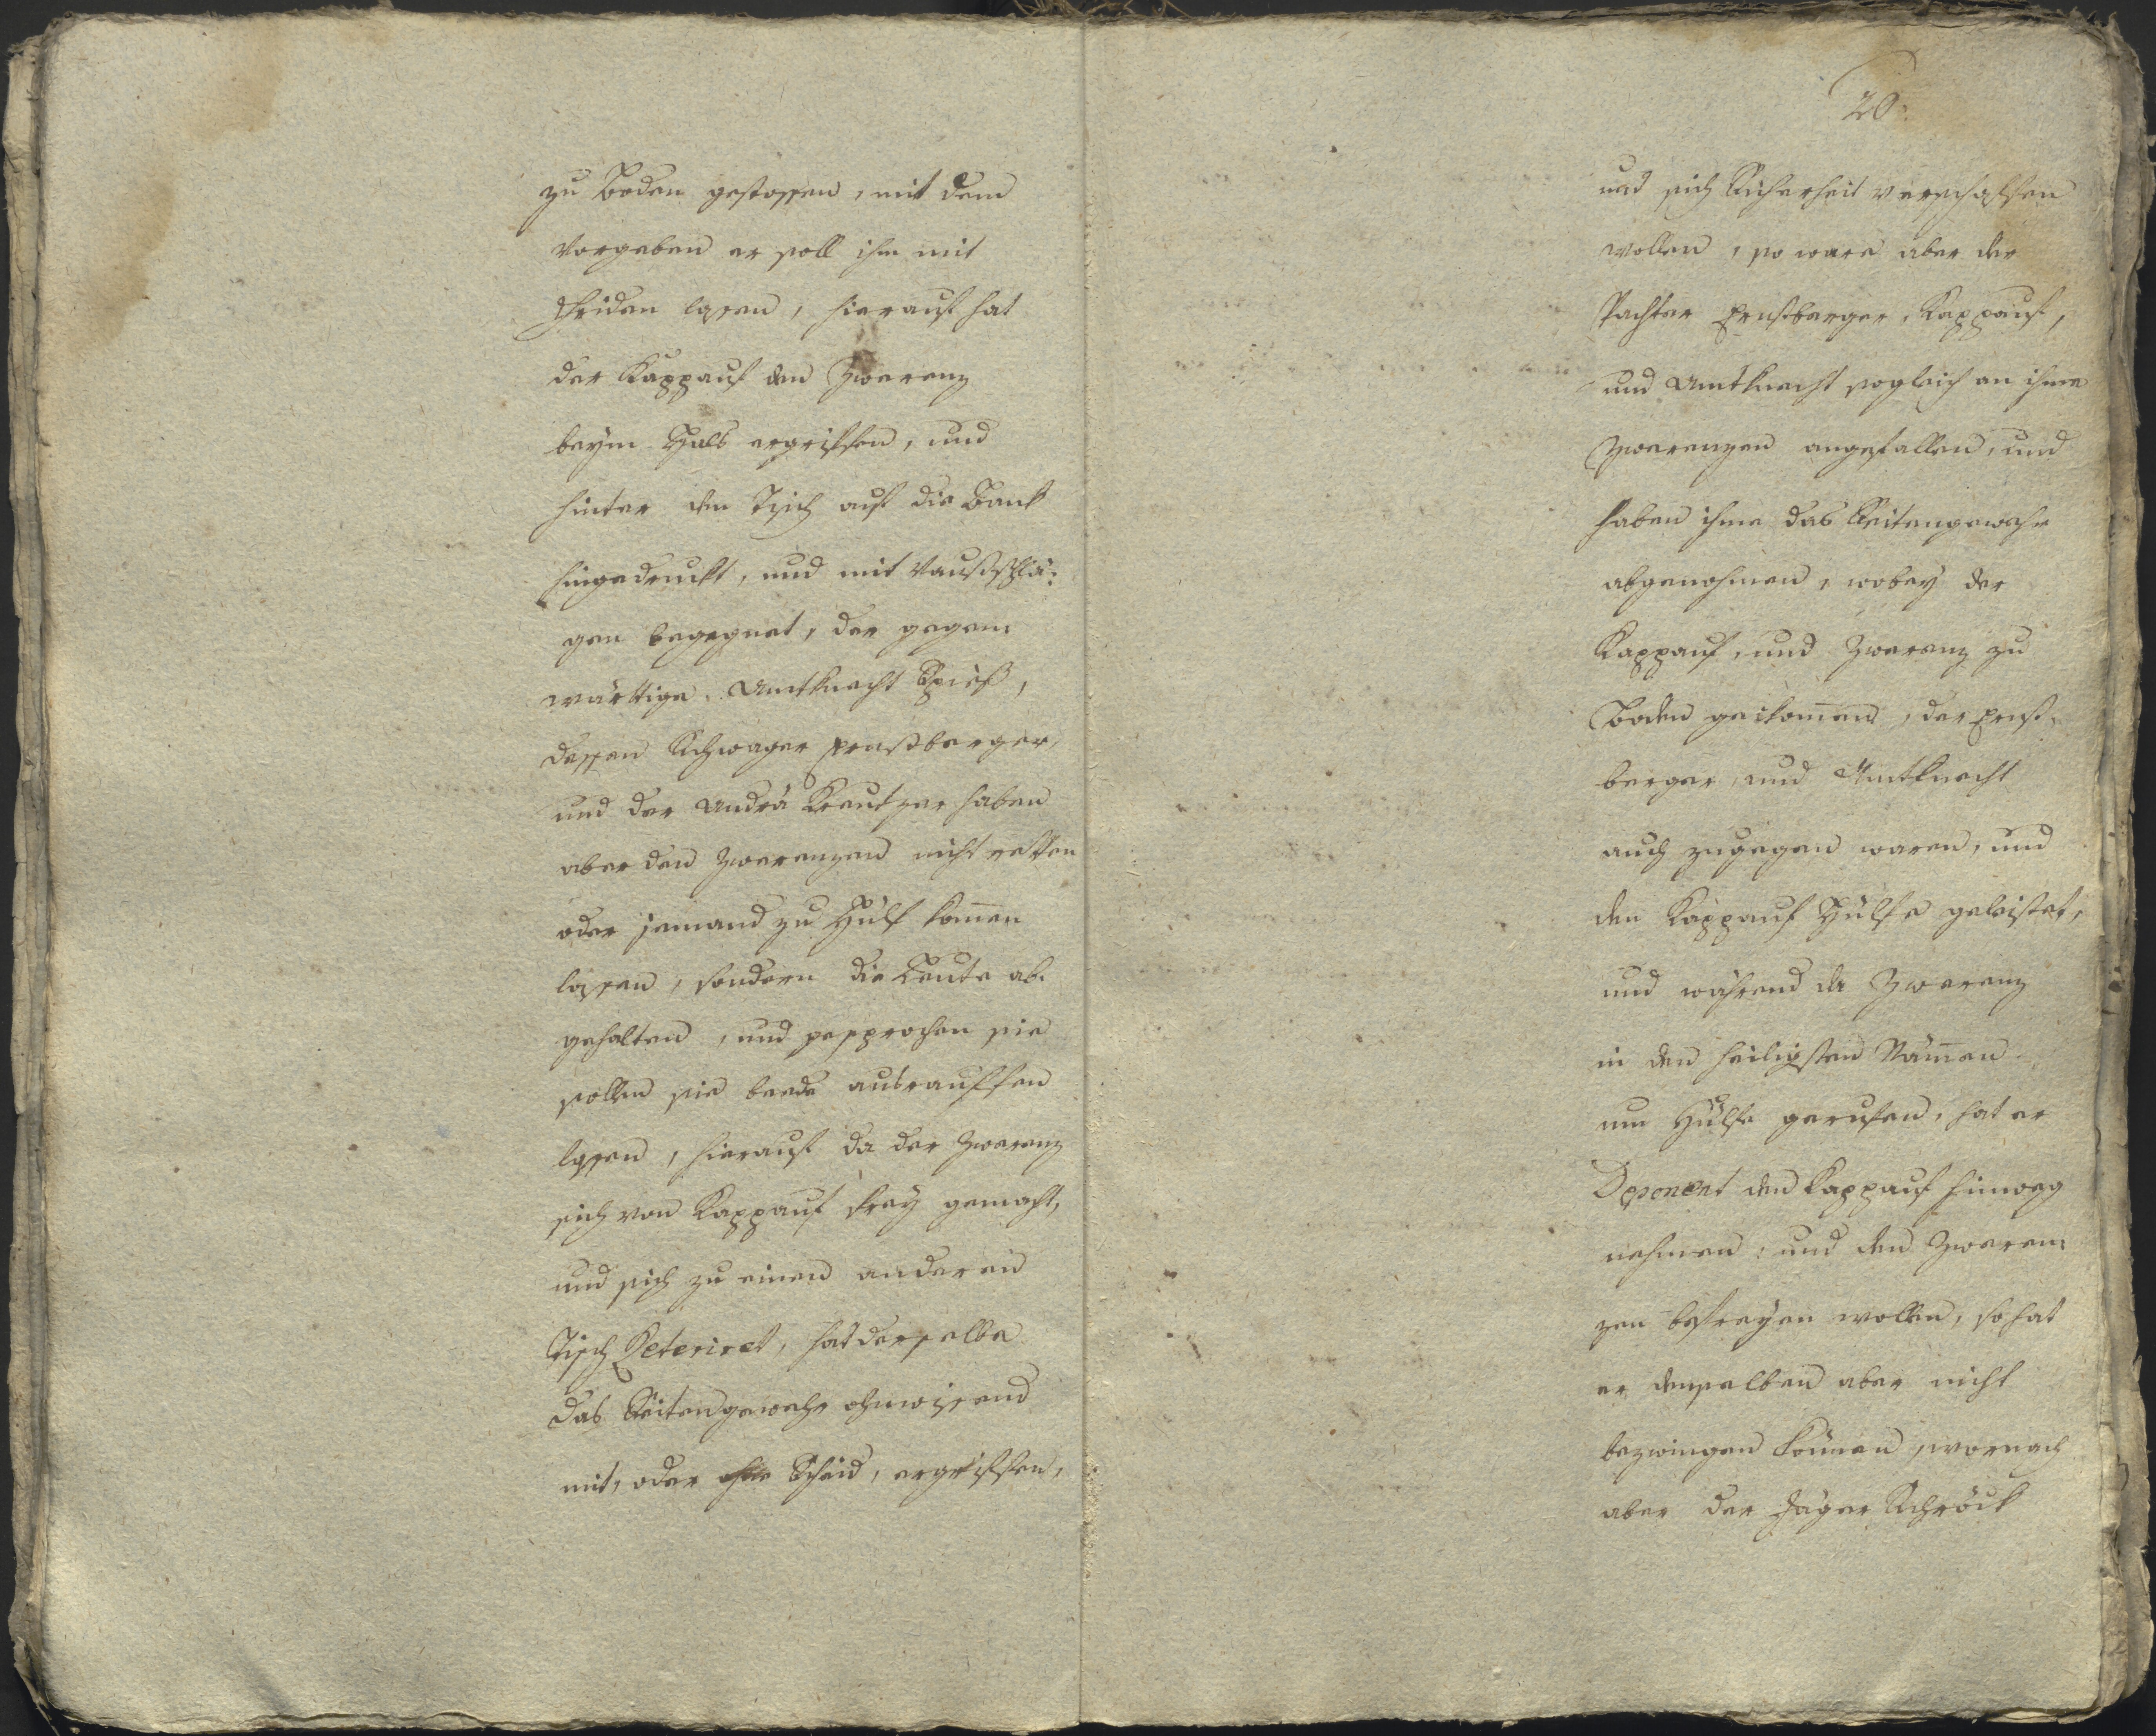 zu Boden gestossen, mit dem
Vorgeben er soll ihm mit
Friden lassen, hierauf hat
der Kappauf den Zwerenz
beym Hals ergriffen, und
hinter den Tisch auf die Bank
hingedruckt, und mit Faustschlä:
gen begegnet, der gegen:
wärttige Amtknecht Spieß,
dessen Schwager Ernstberger,
und der Andrä Kreutzer haben
aber den Zwerenzen nicht retten
oder jemand zu Hülf kom̄en
lassen, sondern die Leute ab:
gehalten, und gesprochen sie
sollen sie beede ausrauffen
lassen, hierauf da der Zwerenz
sich von Kappauf frey gemacht,
und sich zu einen anderen
Tisch Reteriret, hat derselbe
das Seitengewehr ohnwissend
mit, oder ohne Scheid, ergriffen,
20.
und sich Sicherheit verschaffen
wollen, so ware aber der
Pachter Ernstberger, Kappauf,
und Amtknecht sogleich an ihme
Zwerenzen angefallen, und
haben ihme das Seitengewehr
abgenohmen, wobey der
Kappauf, und Zwerenz zu
Boden gekom̄en, der Ernst:
berger, und Amtknecht
auch zugegen waren, und
den Kappauf Hülfe geleistet,
und während der Zwerenz
in den heiligsten Näm̄en
um Hülfe gerufen, hat er
Deponent den Kappauf hinweg
nehmen, und den Zweren:
zen befreyen wollen, so hat
er denselben aber nicht
bezwingen können, wornach
aber der Jäger Schröck